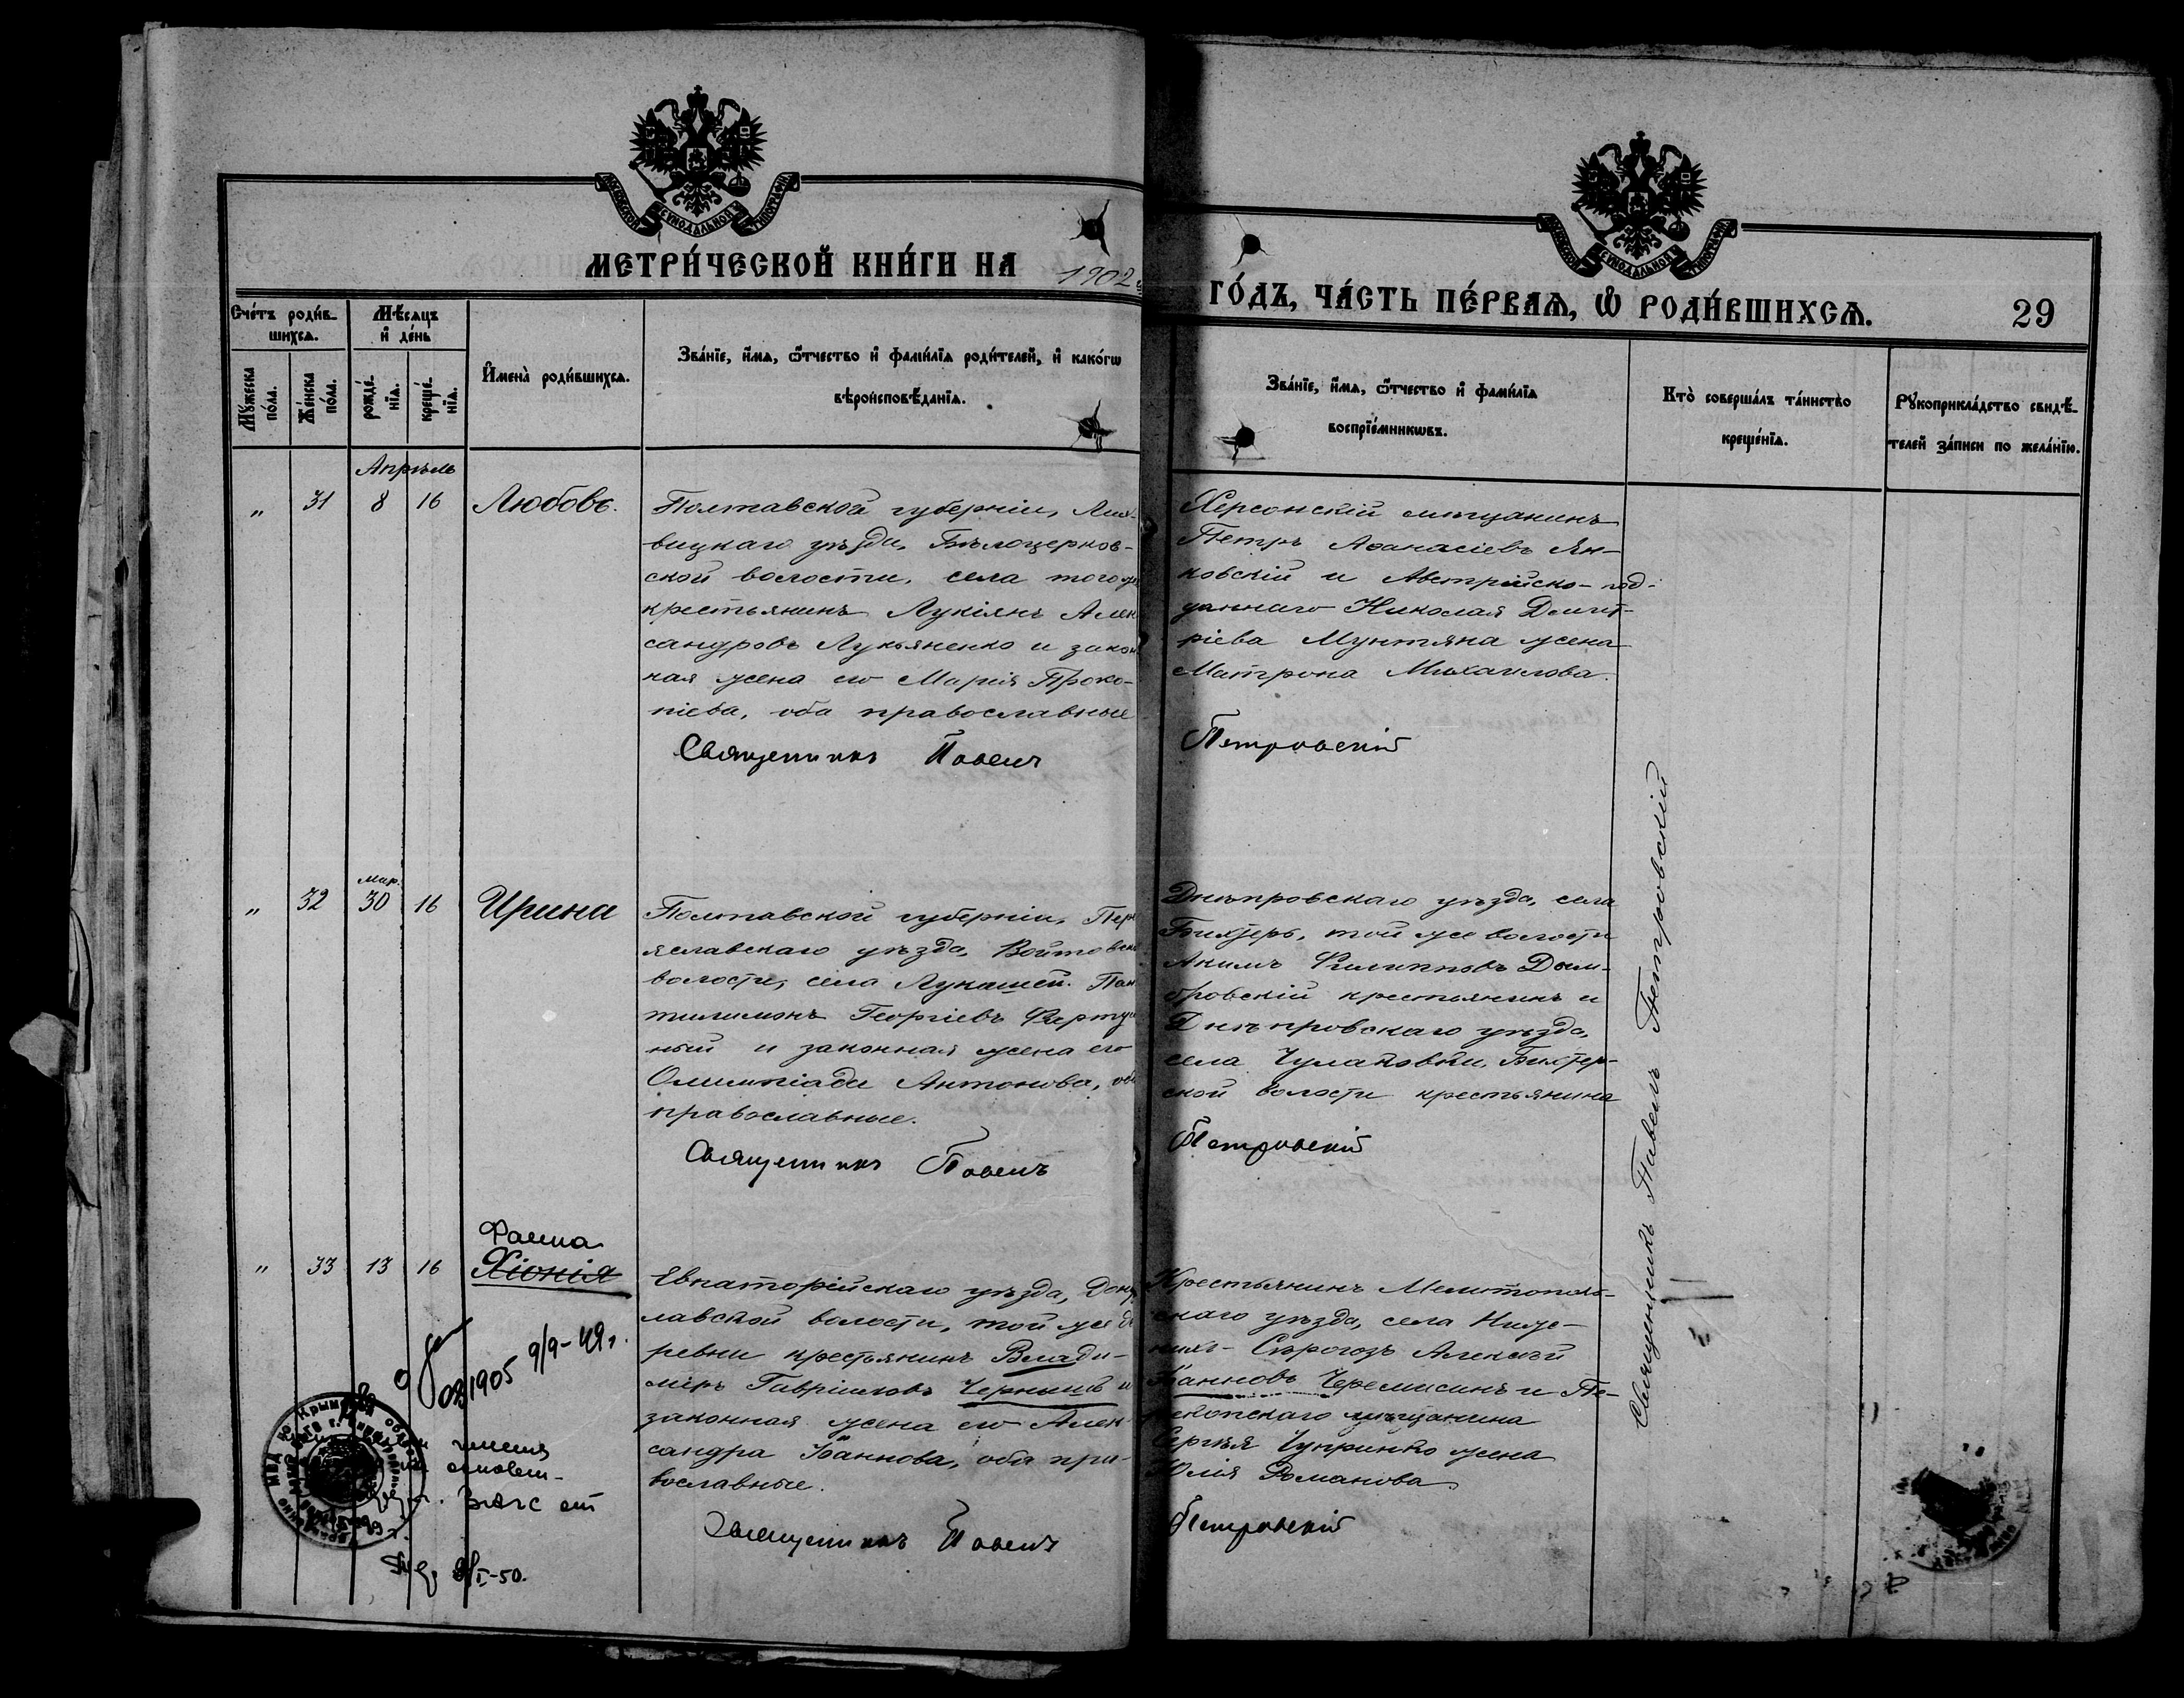 МЕТРИ́ЧЕСКОЙ КНИ́ГИ НА 1902
ГО́ДЪ, ЧА́СТЬ ПЕ́РВАѦ, Ѡ РОДИ́ВШИХСѦ.
29
Сче́тъ роди́в-
шихсѧ.
Мѣ́сѧцъ
и де́нь
Мꙋ́жеска
по́ла.
Же́нска
по́ла.
рожде́-
нїѧ.
креще́-
нїѧ.
И́мена̀ роди́вшихсѧ.
Зва́нїе, и́мѧ, ѻ҆́тчество и҆ фами́лїѧ роди́телей, и҆ како́гѡ
вѣроисповѣ́данїѧ.
Зва́нїе, и́мѧ, ѻ҆́тчество и҆ фами́лїѧ
воспрїе́мникѡвъ.
Кто̀ соверша́лъ та́инство
креще́нїѧ.
Рꙋкоприкла́дство свидѣ́-
телей за́писи по жела́нїю.
Апрѣль
" 31 8 16 Любовь.
Полтавской губерніи, Лох-
вицкаго уѣзда, Бѣлоцерков-
ской волости, села того же
крестьянинъ Лукіянъ Алек
сандровъ Лукьяненко и закон
ная жена его Марія Проко-
піева, оба православные
Священникъ Павелъ
Херсонскій мѣщанинъ
Петръ Аѳанасіевъ Ян-
ковскій и Австрійско-под-
даннаго Николая Дмит-
ріева Мунтяна жена
Матрона Михаилова.
Петровскій
" 32 мар. 30 16 Ирина
Полтавской губерніи, Пере
яславскаго уѣзда, Войтовск
волости, села Лукашей. Пан
тилимонъ Георгіевъ
ный и законная жена его
Олимпіада Антонова, оба
православные.
Священникъ Павелъ
Днѣпровскаго уѣзда, села
Бихтеръ, той же волости
Акимъ Филипповъ Дом-
бровскій крестьянинъ и
Днѣпровскаго уѣзда,
села Чулаковки, Бихтер-
ской волости крестьянина
Петровскій
Фаина
" 33 13 16 Хіонія
Евпаторійскаго уѣзда, Донуз
лавской волости, той же де
ревни крестьянинъ Влади-
міръ Гавріиловъ Чернышъ и
законная жена его Алек-
сандра Іоаннова, оба пра-
вославные.
Священникъ Павелъ
Крестьянинъ Мелитополь-
скаго уѣзда, села Ниж-
нихъ-Сѣрогозъ Алексѣй
Іоанновъ Черемисинъ и Пе-
рекопскаго мѣщанина
Сергѣя Чупринко жена
Юлія Романова
Петровскій
Священникъ Павелъ Петровскій
081905 9/9-49г.
имени
основан-
ЗАГС от
9/I-50.